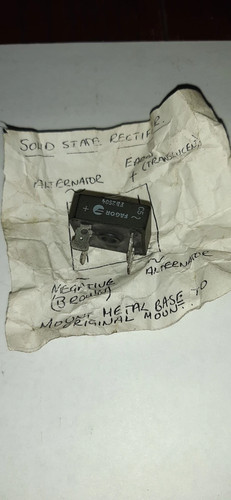 SOLID STATE RECTIFIER
EARTH
ALTERNATOR
+
FAGOR
+
NEGATIVE
(BROWN)
ALTERNATOR
MOUNT METAL BASE TO
ORIGINAL MOUNT